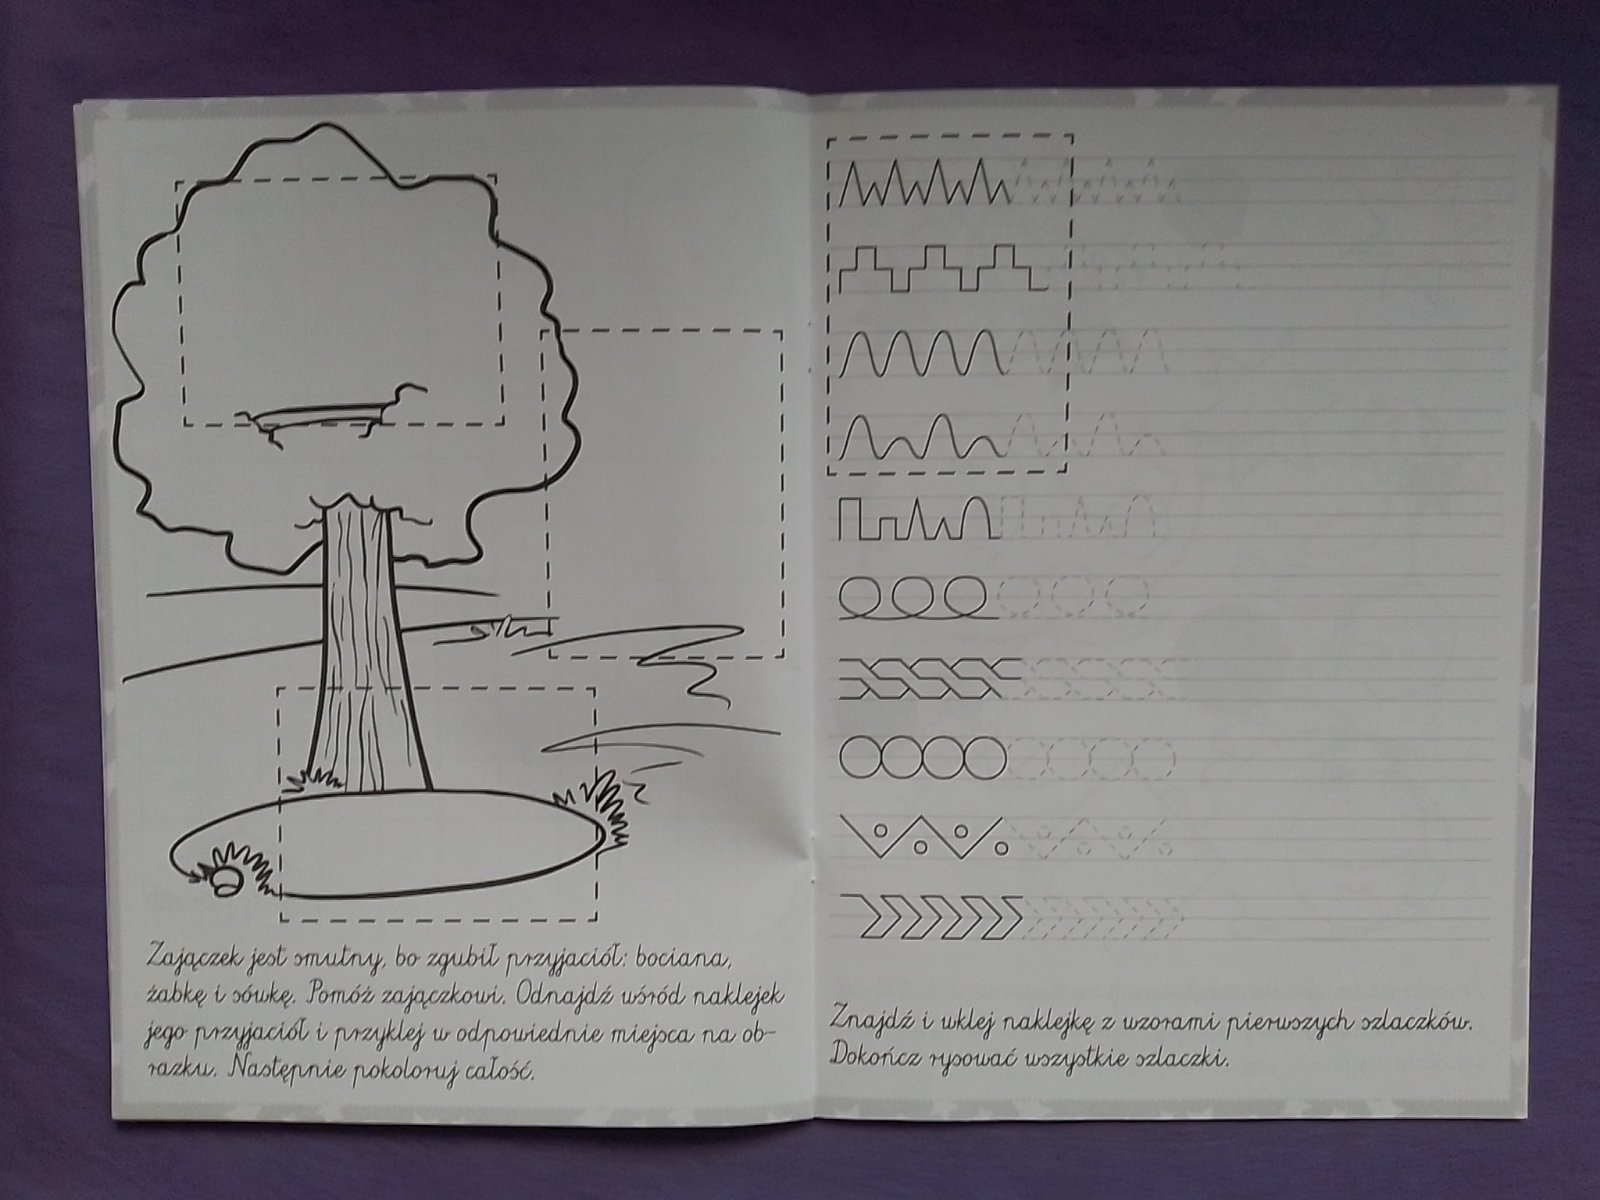 Zajączek jest smutny, bo zgubił przyjaciół: bociana,
żabkę i sówkę. Pomóż zajączkowi. Odnajdź wśród naklejek
jego przyjaciół i przyklej w odpowiednie miejsca na ob-
razku. Następnie pokoloruj całość.
Znajdź i wklej naklejkę z wzorami pierwszych szlaczków.
Dokończ rysować wszystkie szlaczki.